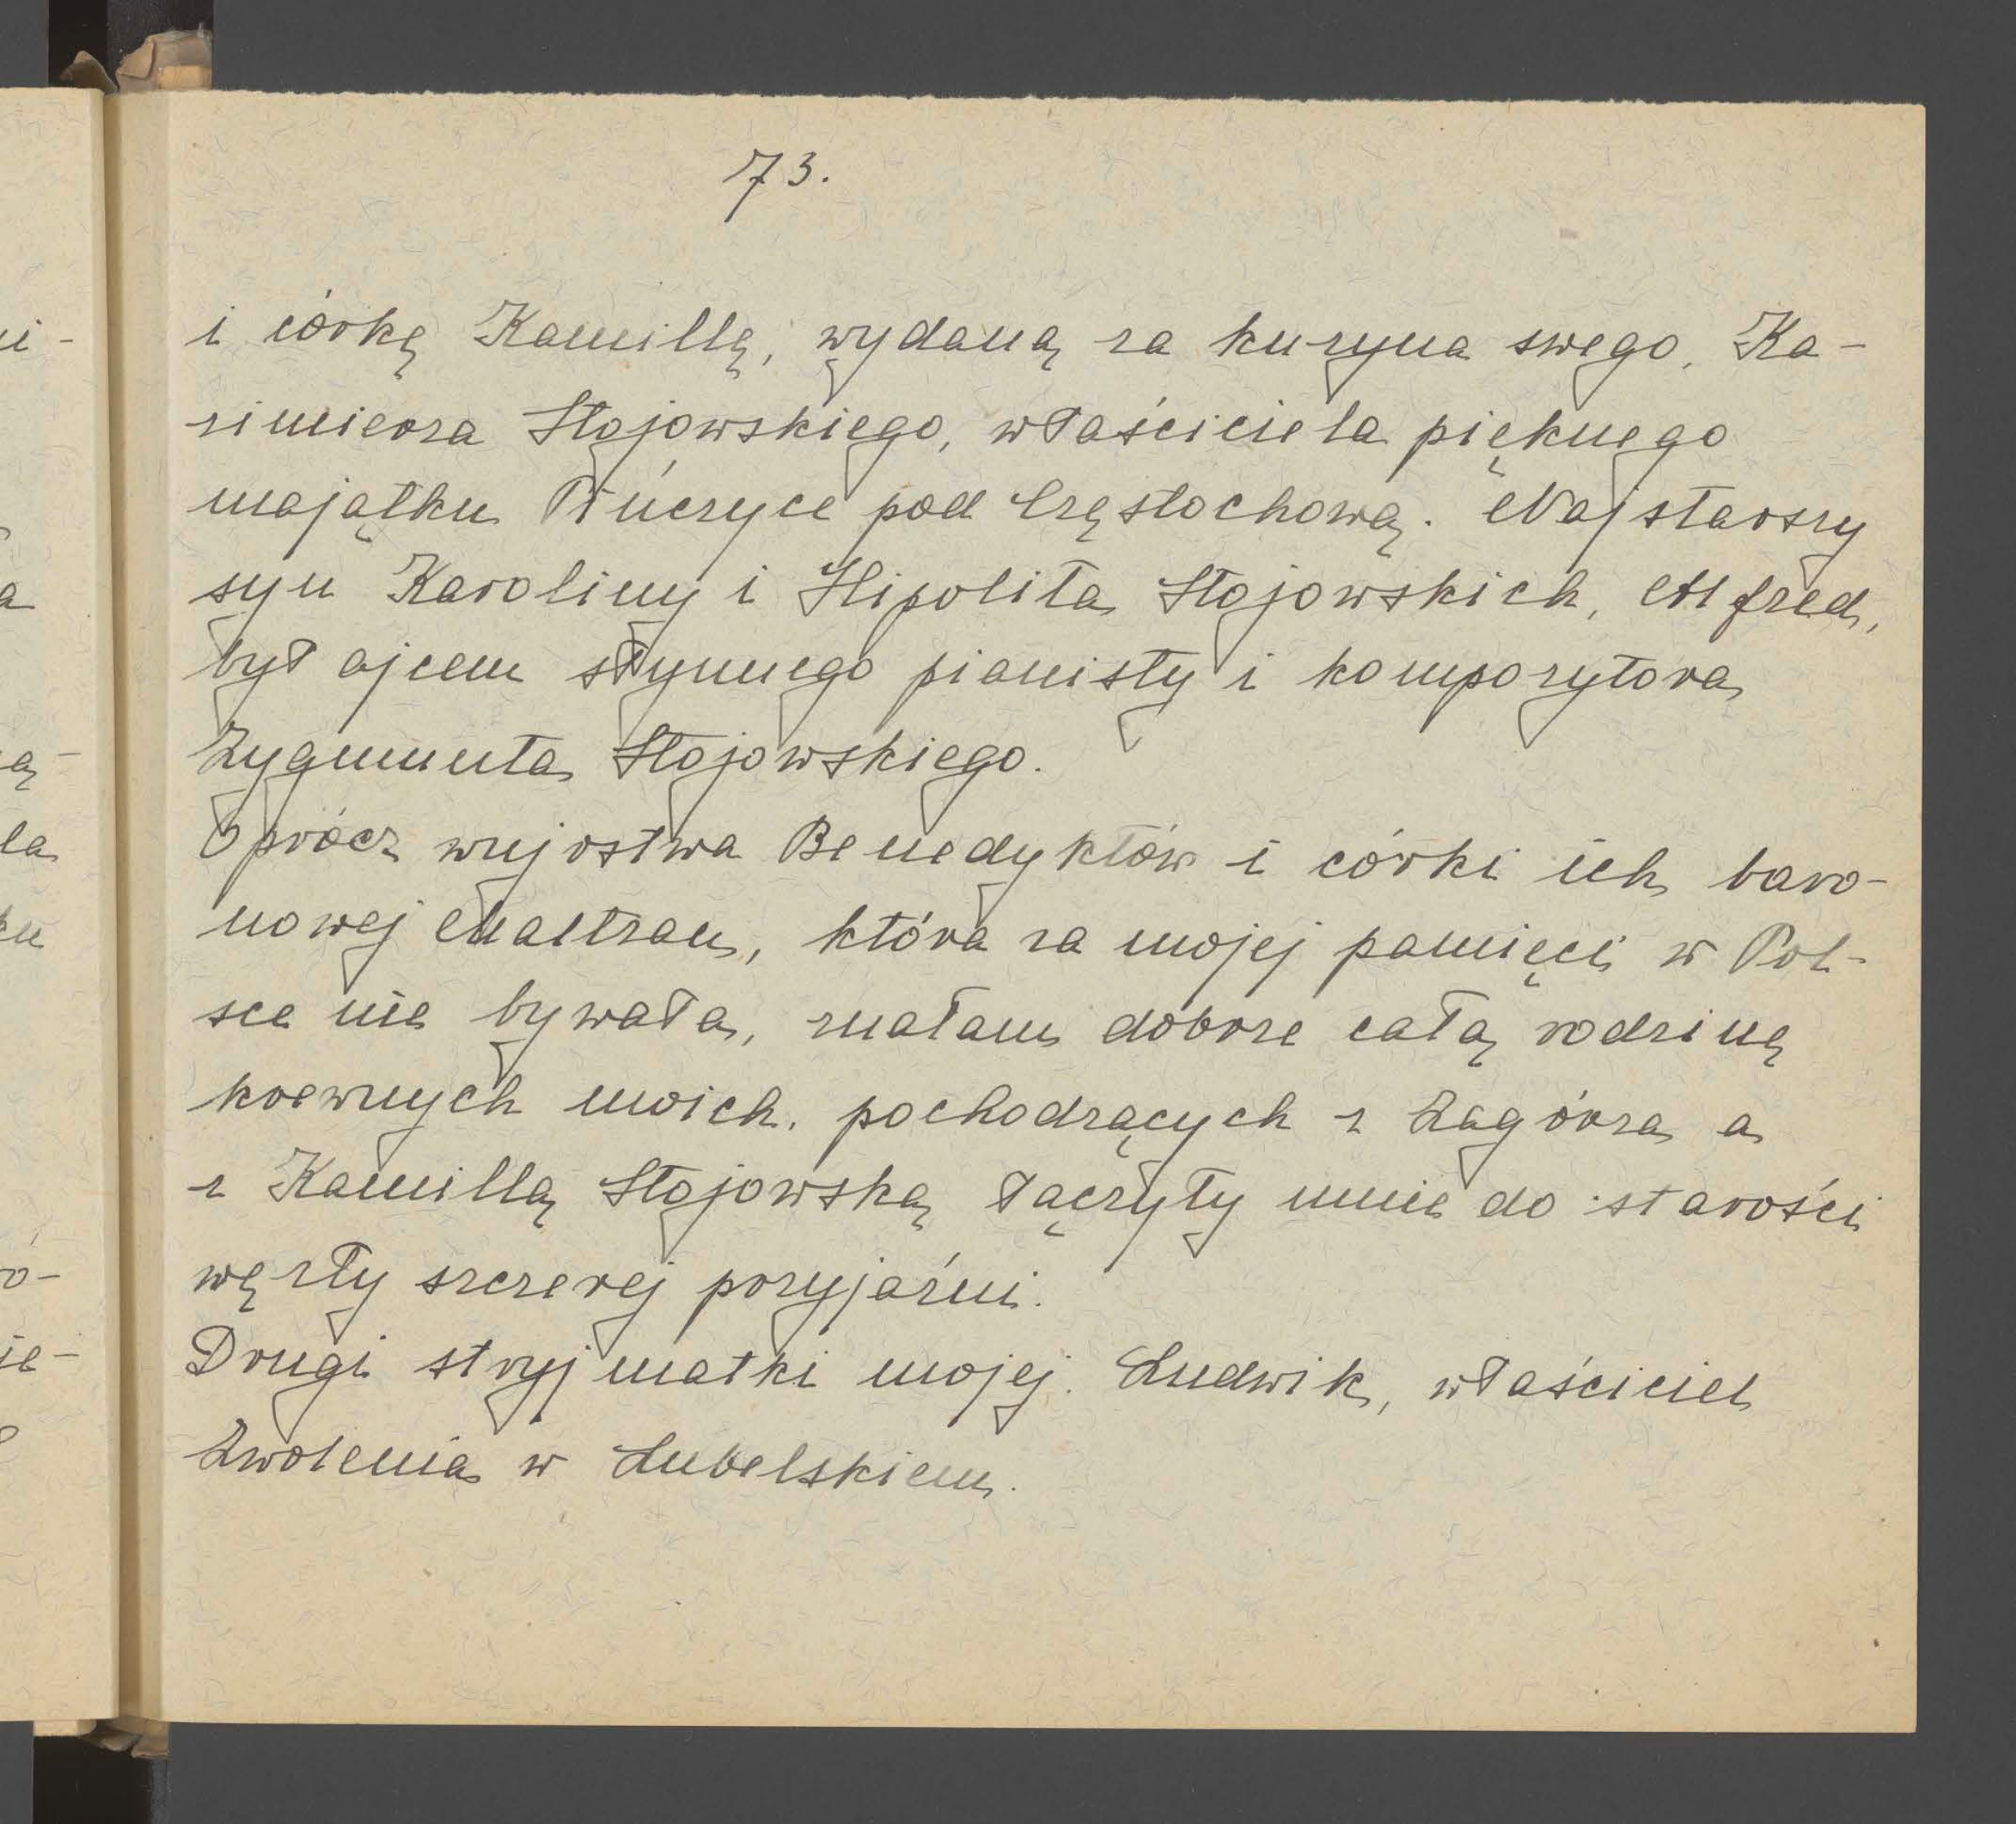 73.
i córkę Kamillę, wydaną za kuzyna swego, Ka-
zimierza Stojowskiego, właściciela pięknego
majątku pod Częstochową. Najstarszy
syn Karoliny i Hipolita Stojowskich, Alfred,
był ojcem słynnego pianisty i kompozytora
Zygmunta Stojowskiego.
Oprócz wujostwa Benedyktów i córki ich baro-
nowej, która za mojej pamięci w Pol-
sce nie bywała, znałam dobrze całą rodzinę
krewnych moich, pochodzących z Zagórza a
z Kamillą Stojowską łączyły mnie do starości
węzły szczerej przyjaźni.
Drugi stryj matki mojej, Ludwik, właściciel
Zwolenia w Lubelskiem.